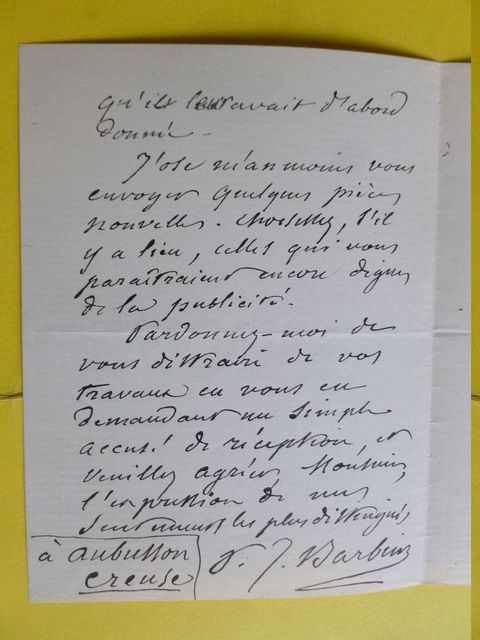 qu'ils leur avait d'abord
donné -
J'ose néanmoins vous
envoyer quelques pièces
nouvelles. Choisissez, s'il
y a lieu, celles qui vous
paraîtraient encore dignes
de la publicité.
Pardonnez-moi de
vous distraire de vos
travaux en vous en
demandant un simple
accusé de réception, et
veuillez agréer, Monsieur,
l'expression de mes
sentiments les plus distingués
J. Barbin
à Aubusson
Creuse